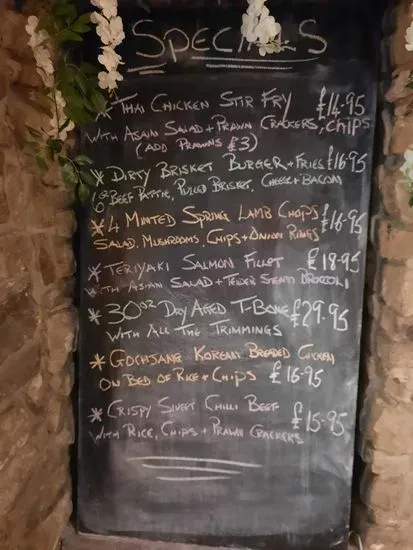 SPECIALS
* THAI CHICKEN STIR FRY £14.95
WITH ASAIN SALAD + PRAWN CRACKERS, CHIPS
(ADD PRAWNS £3)
* DIRTY BRISKET BURGER + FRIES £16.95
6oz BEEF PATTIE, PULLED BRISKET, CHEESE + BACON
* 4 MINTED SPRING LAMB CHOPS £16.95
SALAD, MUSHROOMS, CHIPS + ONION RINGS
* TERIYAKI SALMON FILLET £18.95
WITH ASIAN SALAD + TENDER STEAM BROCCOLI
* 30oz DRY AGED T-BONE £29.95
WITH ALL THE TRIMMINGS
* GOCHJANG KOREAN BREADED CHICKEN
ON BED OF RICE + CHIPS £16.95
* CRISPY SWEET CHILLI BEEF £15.95
WITH RICE, CHIPS + PRAWN CRACKERS